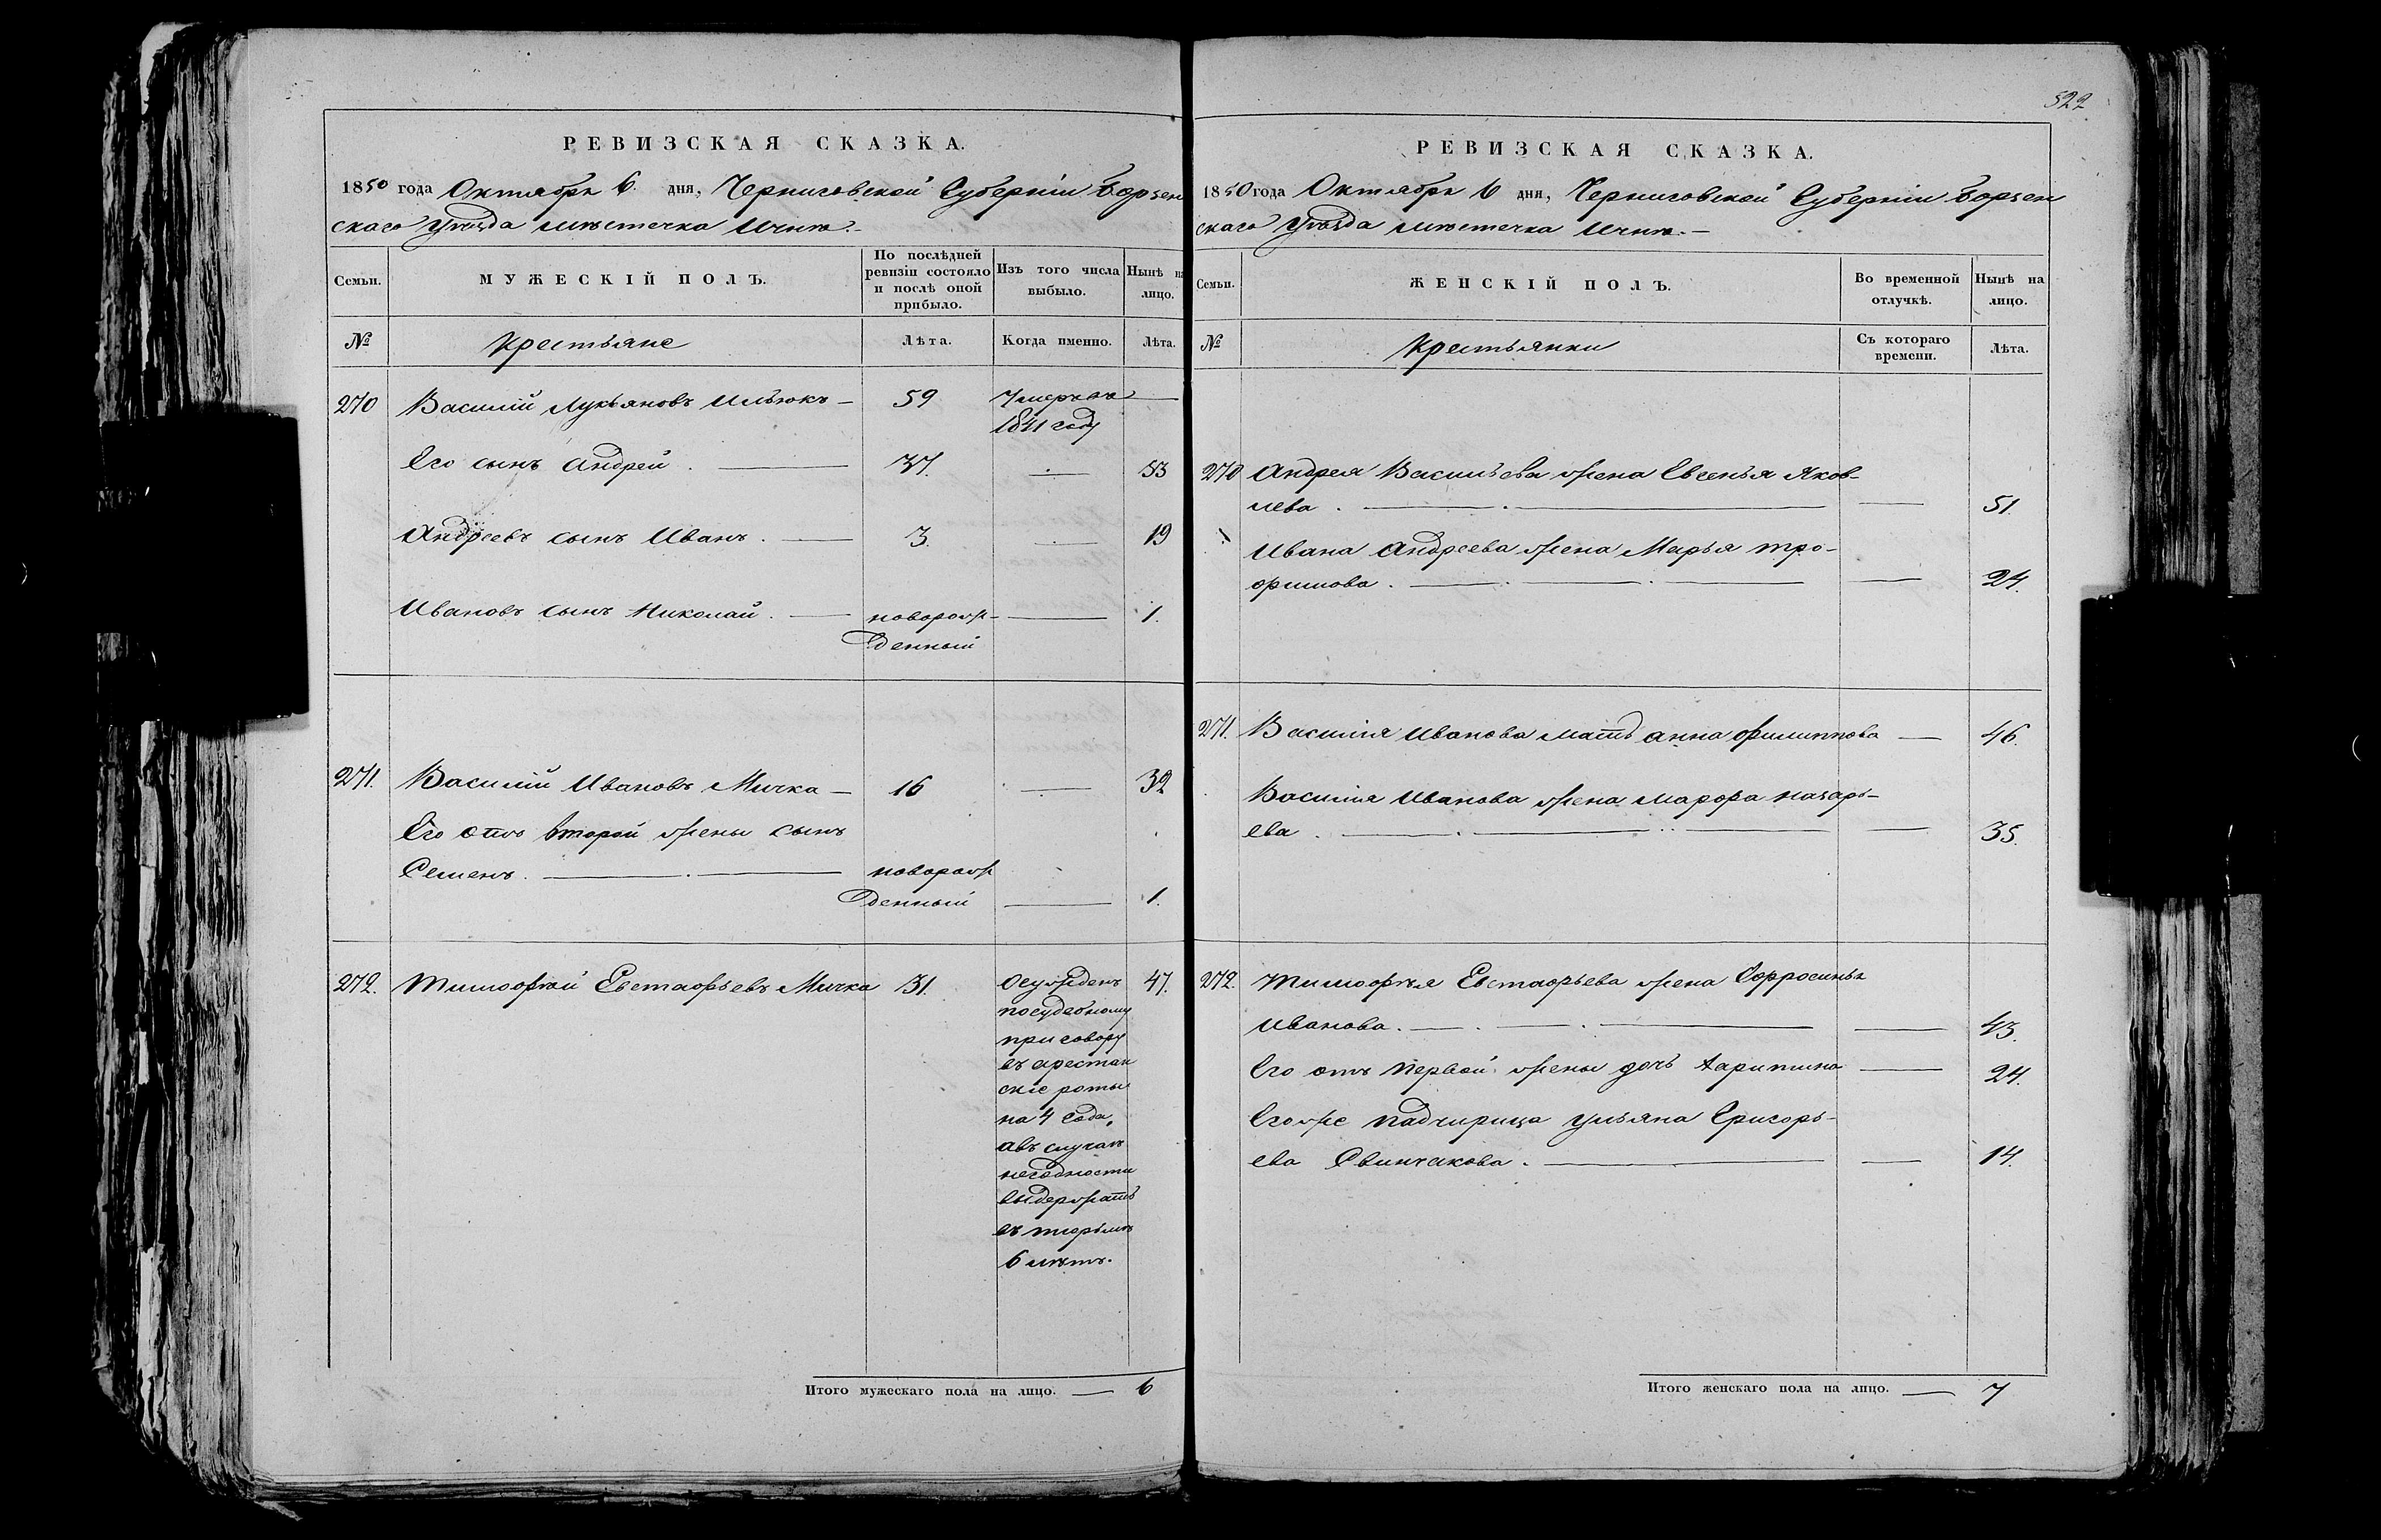 РЕВИЗСКАЯ СКАЗКА.
1850 года Октября 6. дня, Черниговской Губерніи Борзен
скаго Уѣзда мѣстечка Ични.
Семьи.
МУЖЕСКІЙ ПОЛЪ.
По послѣдней
ревизіи состояло
и послѣ оной
прибыло.
Изъ того числа
выбыло.
Нынѣ на
лицо.
№
Крестьяне
Лѣта.
Когда именно.
Лѣта.
270 Василій Лукьяновъ Ильюкъ — 59 Умеръ въ —
1841 году
Его сынъ Андрей . — 37. — 53
Андреевъ сынъ Иванъ . — 3. — 19
Ивановъ сынъ Николай . — новорож- — 1.
денный
271. Василій Ивановъ Мичка — 16 — 32
Его отъ второй жены сынъ
Семенъ . — новорож
денный — 1.
272. Тимофѣй Евстафьевъ Мичка 31. Осужденъ 47.
посудебному
приговору
въ арестан
скіе роты
на 4 года,
авъ случаѣ
негодности
выдержать
въ тюрьмѣ
6 лѣтъ.
Итого мужескаго пола на лицо. — 6
522
РЕВИЗСКАЯ СКАЗКА.
1850 года Октября 6 дня, Черниговской Губерніи Борзен
скаго Уѣзда мѣстечка Ични. —
Семьи.
ЖЕНСКІЙ ПОЛЪ.
Во временной
отлучкѣ.
Нынѣ на
лицо.
№
Крестьянки
Съ котораго
времени.
Лѣта.
270 Андрея Васильева жена Евгенья Яков-
лева . — 51.
Ивана Андреева жена Марья Тро-
фимова . — 24.
271. Василія Иванова мать Анна Филиппова — 46.
Василія Иванова жена Марфа Назарь-
ева . — 35.
272. Тимофѣя Евстафьева жена Ефросинья
Иванова . — 43.
Его отъ первой жены дочь Харитина — 24.
Егоже падчирица Ульяна Григорь-
ева Свинчакова . — 14.
Итого женскаго пола на лицо. — 7